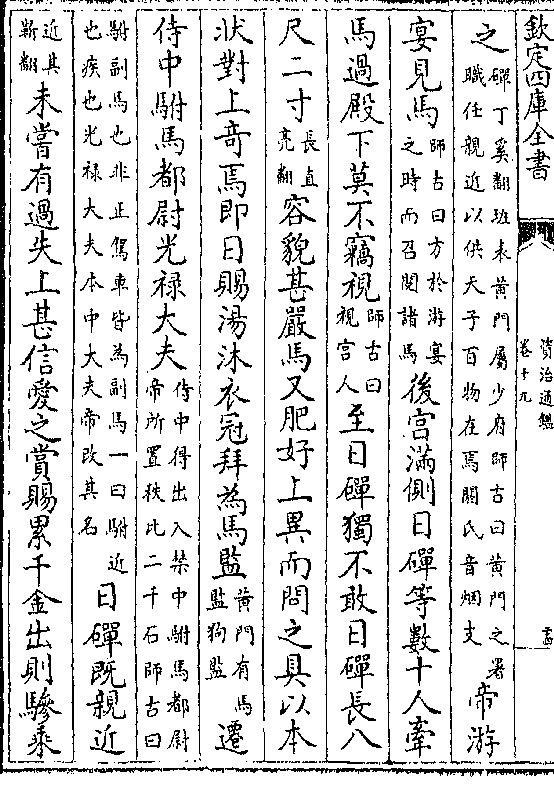 欽定四庫全書
資治通鑑
卷十九
之磾丁奚翻班表黄門屬少府師古曰黄門之署職任親近以供天子百物在焉閼氏音煙支帝游
宴見馬師古曰方於游宴之時而召閱諸馬後宫滿側日磾等數十人牽
馬過殿下莫不竊視師古曰視宫人至日磾獨不敢日磾長八
尺二寸長直亮翻容貌甚嚴馬又肥好上異而問之具以本
狀對上竒焉即日賜湯沐衣冠拜為馬監黄門有馬監狗監遷
侍中駙馬都尉光禄大夫侍中得出入禁中駙馬都尉帝所置秩比二千石師古曰
駙副馬也非正駕車皆為副馬一曰駙近也疾也光禄大夫本中大夫帝改其名日磾既親近
近其靳翻未嘗有過失上甚信愛之賞賜累千金出則驂乗